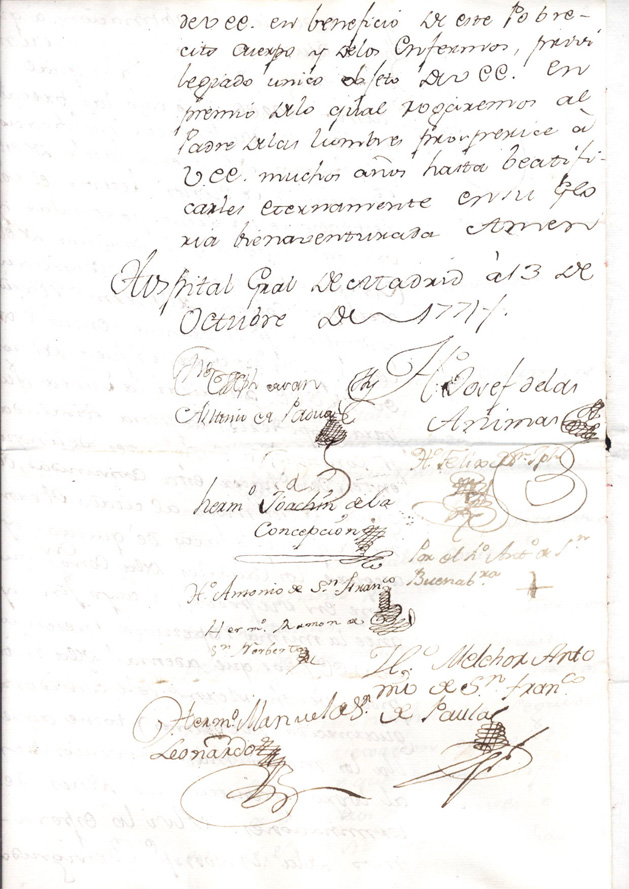 de V.EE. en beneficio de este Pobre-
cito Cuerpo y delos Enfermos, privi
legiado unico objeto de V.EE. En
premio delo qual rogaremos al
Padre delas lumbres prosperice à
V.EE. muchos años hasta beatifi-
carles eternamente en su Glo
ria bienaventurada Amen
Hospital Gral de Madrid à 13 de
Octubre de
Antonio de Padua
Hº Josef de las
Animas
Hº Felix
hermº Joachin de la
Concepcion
Por el hº Antº de Sn
Buenabra
Hº Antonio de Sn Franco
Hermº Ramon de
Sn Norberto
Hº Melchor Anto
nio de Sn Franco
de Paula
Hermº Manuel de Sn
Leonardo